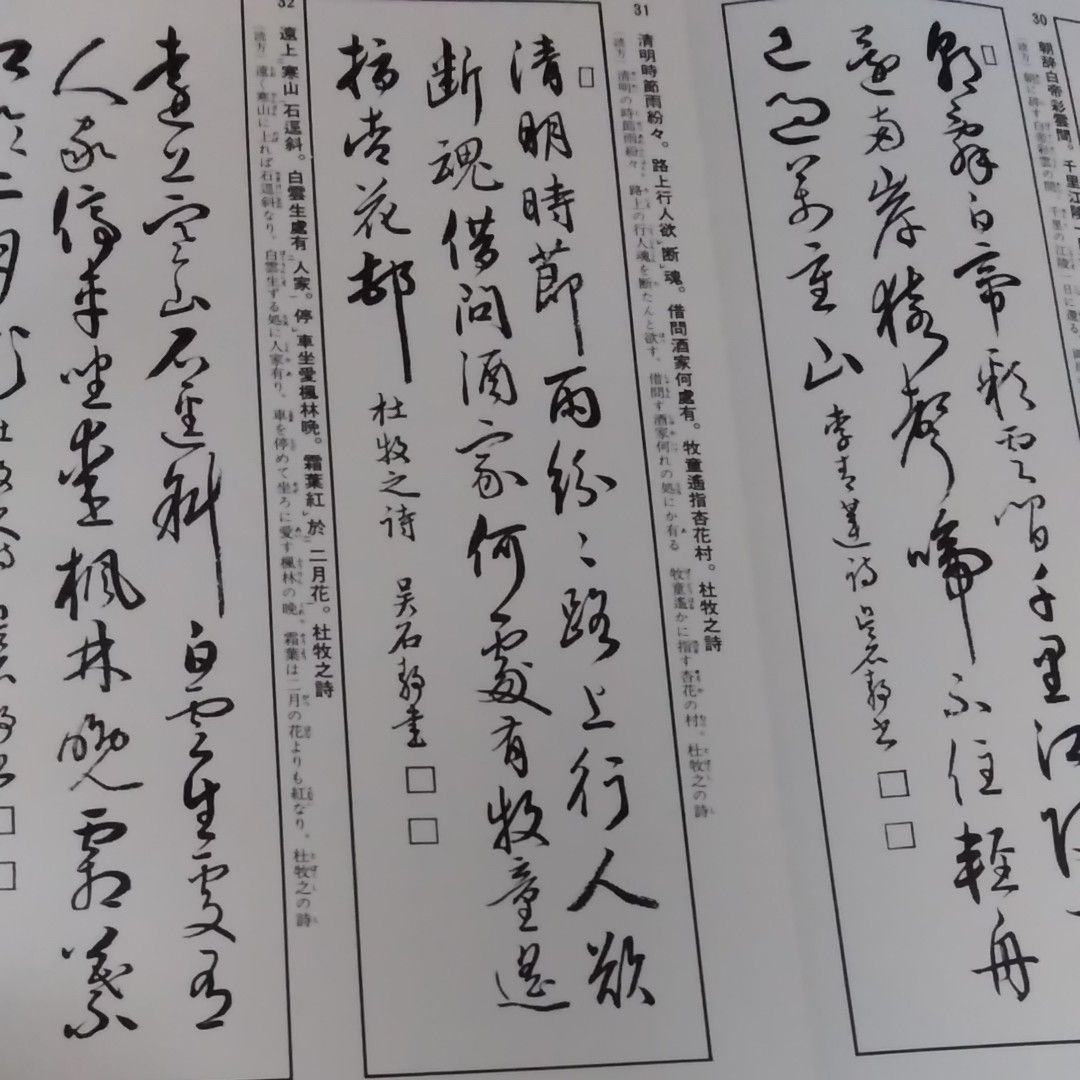 30
朝辞白帝彩雲間。千里江陵一
朝辭白帝彩雲間千里江陵
還両岸猿聲啼不住輕舟
已過萬重山
李青蓮詩 吳石静書
31
清明時節雨紛々。路上行人欲断魂。借問酒家何處有。牧童遙指杏花村。杜牧之詩
〔読方〕清明の時節雨紛々 路上の行人魂を断たんと欲す。借問す酒家何れの処にか有る 牧童遙かに指す杏花の村。杜牧之の詩
清明時節雨紛〻路上行人欲
断魂借問酒家何處有牧童遥
指杏花邨
杜牧之詩 吴石静書
32
遠上寒山石逕斜。白雲生處有人家。停車坐愛楓林晩。霜葉紅於二月花。杜牧之詩
〔読方〕遠く寒山に上れば石逕斜なり、白雲生ずる処に人家有り。車を停めて坐ろに愛す楓林の晩。霜葉は二月の花よりも紅なり。杜牧之の詩
遠上寒山石逕斜白雲生處有
人家停車坐愛楓林晩霜葉
紅於二月花
杜牧之詩